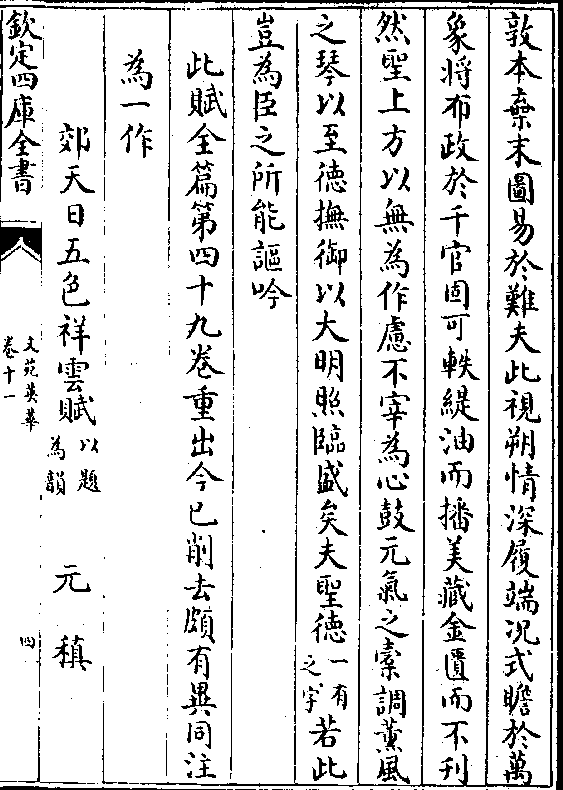 敦本棄末圖易於難夫此視朔情深履端況式瞻於萬
象將布政於千官固可軼緹油而播美藏金匱而不刊
然聖上方以無為作慮不宰為心鼓元氣之橐調薰風
之琴以至德撫御以大明照臨盛矣夫聖德一有之字若此
豈為臣之所能謳吟
此賦全篇第四十九卷重出今已削去頗有異同注
為一作
郊天日五色祥雲賦以題為韻 元稹
欽定四庫全書
文苑英華
卷十一
四